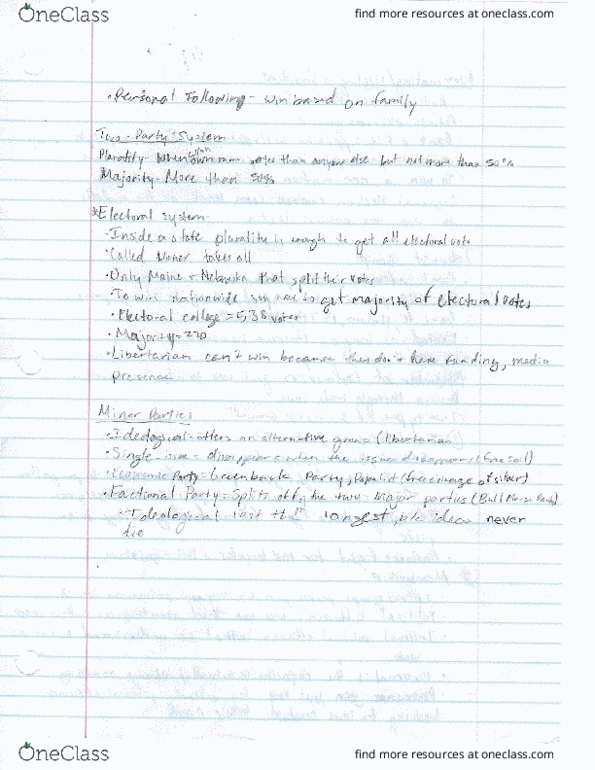 OneClass
find more resources at oneclass.com
• Personal Following - win based on family
Two-Party System
Plurality - When own more votes than anyone else but not more than 50%
Majority - More than 50%
*Electoral system
• Inside a state plurality is enough to get all electoral vote
• Called Winner takes all
• Only Maine + Nebraska that split their votes
• To win nationwide you have to get majority of electoral votes
• Electoral college = 538 votes
• Majority = 270
• Libertarian can't win because they don't have funding, media
presence
Minor Parties
• Ideological - offers an alternative group (libertarian)
• Single-issue - disappears when the issue disappears (free soil)
• Economic Party - Greenback Party, Populist (free coinage of silver)
• Factional Party - Splits off the two Major parties (Bull Moose Party)
- Ideological last the longest, b/c ideas never
die
OneClass
find more resources at oneclass.com